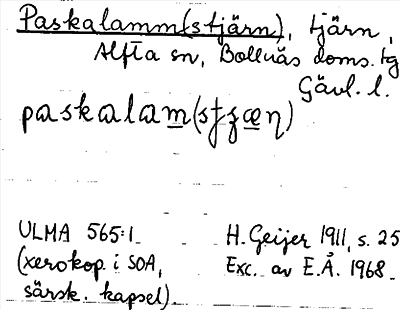 Paskalamm(stjärn), tjärn,
Alfta sn, Bollnäs doms. tg
Gävl. l.
paskalam(stʒæɳ)
ULMA 565:1 H. Geijer 1911, s. 25
(xerokop. i SOA, Exc. av E.Å. 1968
särsk. kapsel).